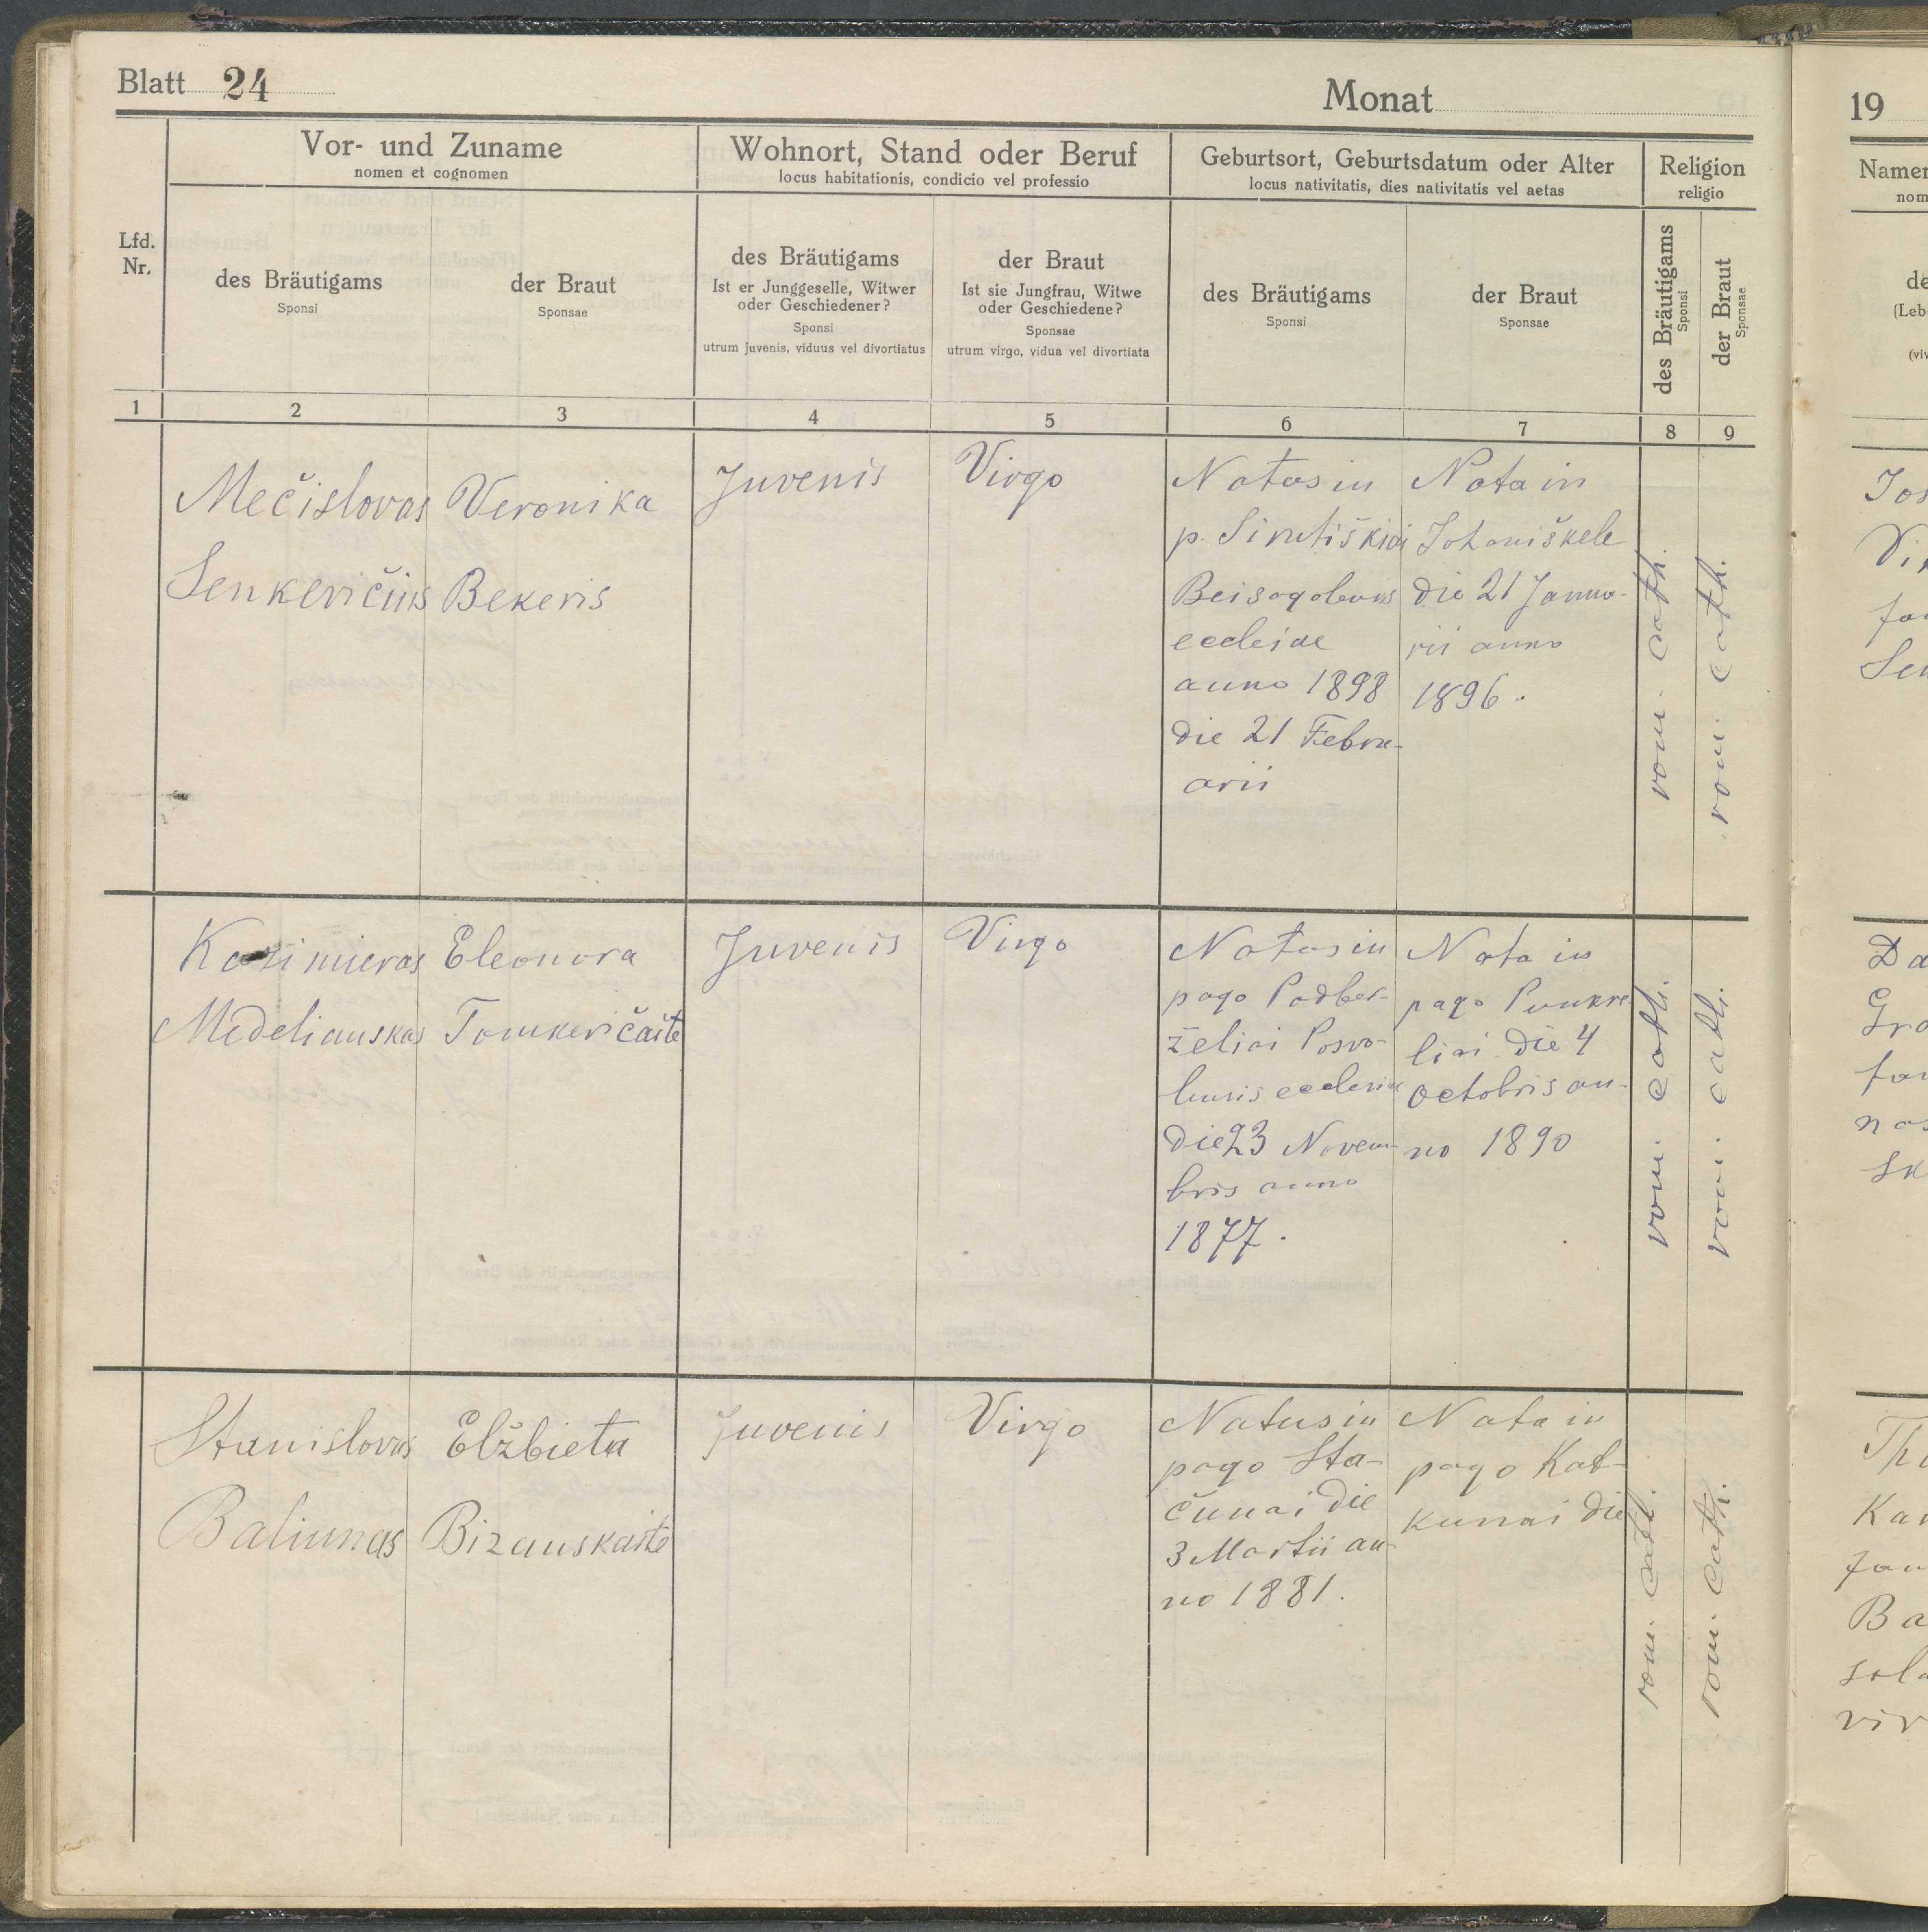 Blatt 24
Monat
Lfd. Nr.
Vor- und Zuname
nomen et cognomen
Wohnort, Stand oder Beruf
locus habitationis, condicio vel professio
Geburtsort, Geburtsdatum oder Alter
locus nativitatis, dies nativitatis vel aetas
Religion
religio
des Bräutigams
Sponsi
der Braut
Sponsae
des Bräutigams
Ist er Junggeselle, Witwer
oder Geschiedener?
Sponsi
utrum juvenis, viduus vel divortiatus
der Braut
Ist sie Jungfrau, Witwe
oder Geschiedene?
Sponsae
utrum virgo, vidua vel divortiata
des Bräutigams
Sponsi
der Braut
Sponsae
des Bräutigams
Sponsi
der Braut
Sponsae
1 2 3 4 5 6 7 8 9
Mečislovas
Senkevičius
Veronika
Bekeris
Juvenis
Virgo
Natus in
p. Sirutiškiai
eclesiae
anno 1898
die 21 Febru-
arii
Nata in
Johaniškele
die 21 Janua-
rii anno
1896.
rom. cath.
rom. cath.
Kazimieras
Medeliauskas
Eleonora
Tomkevičaitė
Juvenis
Virgo
Natus in
pago Padber-
želiai Posvo-
lensis ecclesiae
die 23 Novem-
bris anno
1877.
Nata in
pago
liai die 4
octobris an-
no 1890
rom. cath.
rom. cath.
Stanislovas
Baliunas
Elžbieta
Bizauskaitė
Juvenis
Virgo
Natus in
pago Sta-
čunai die
3 Martii an-
no 1881.
Nata in
pago Kat-
kunai die
rom. cath.
rom. cath.
19
Namen
nom
de
(Leb
(viv
Jos
Sen
Da
Gra
nas
Sk
Th
Kar
Ba
sola
vir